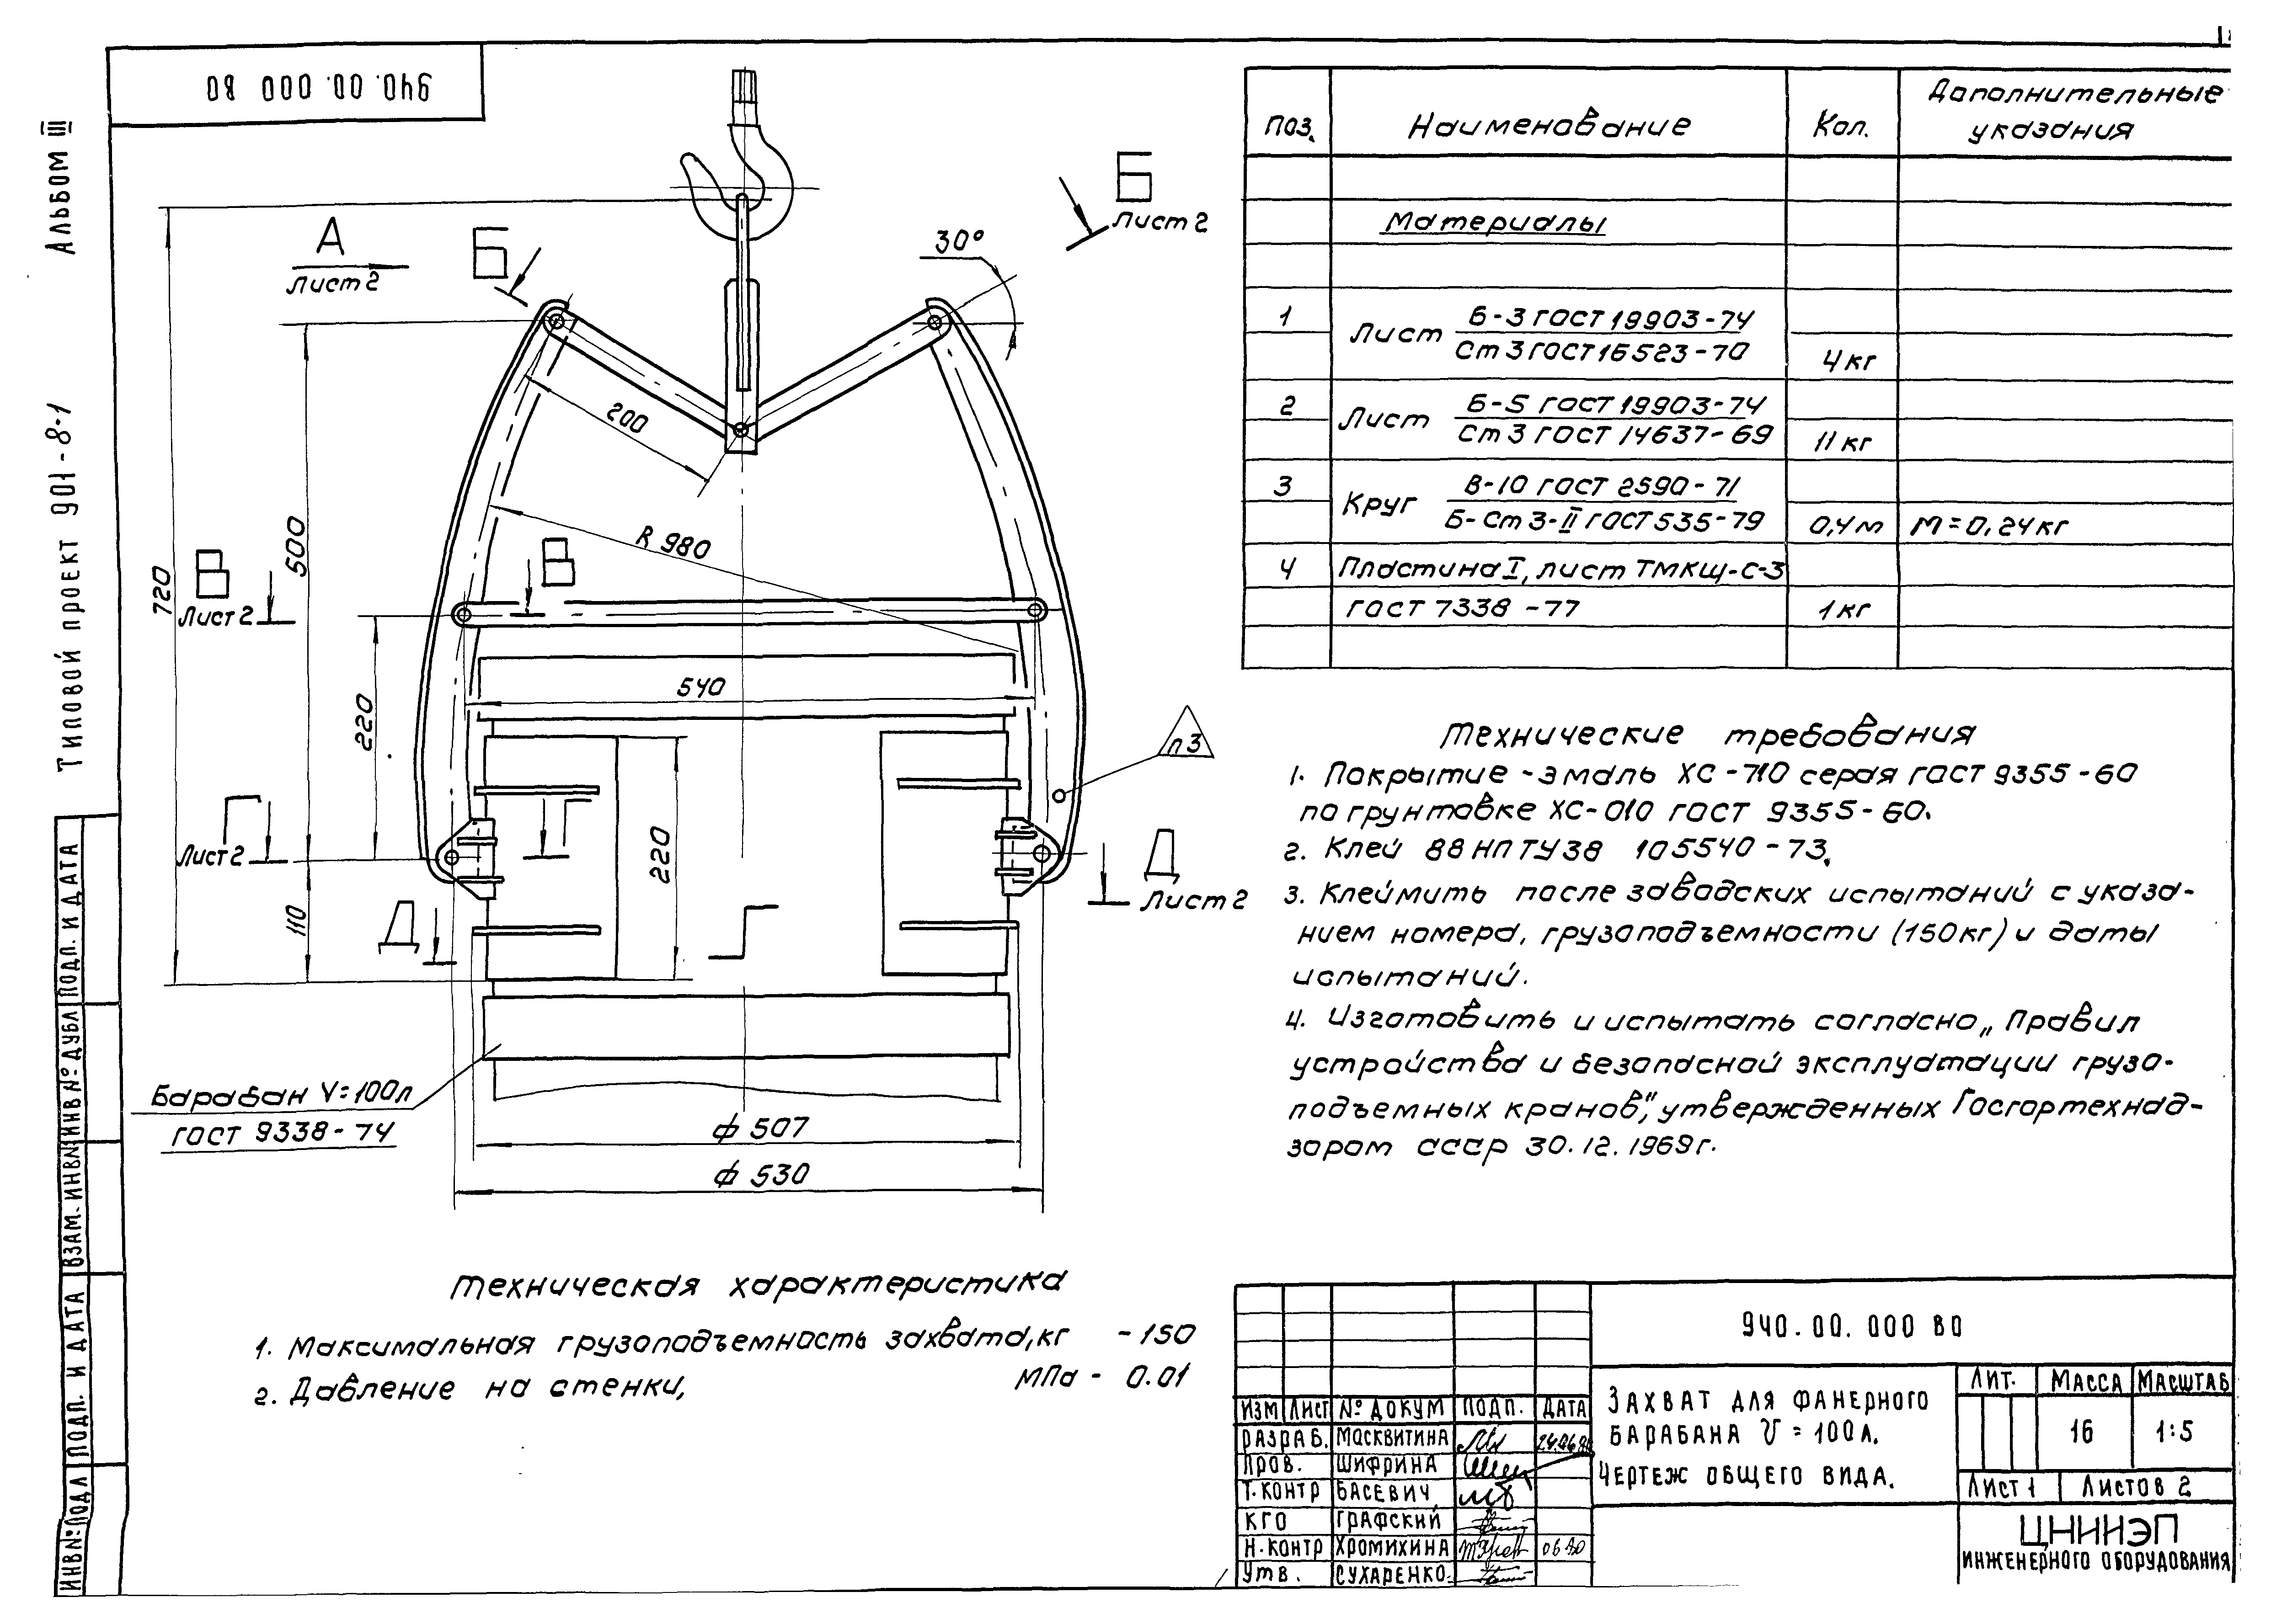 940.00.000 ВО
Альбом III
Типовой проект 901-8-1
А
Лист 2
Б
Б
Лист 2
30°
200
R 980
500
720
В
Лист 2
В
540
220
220
Г
Лист 2
Г
п3
Д
Лист 2
Д
110
Барабан V=100л
ГОСТ 9338-74
ф 507
ф 530
Поз. Наименование Кол. Дополнительные указания
Материалы
1 Лист Б-3 ГОСТ 19903-74
Ст 3 ГОСТ 16523-70 4 кг
2 Лист Б-5 ГОСТ 19903-74
Ст 3 ГОСТ 14637-69 11 кг
3 Круг В-10 ГОСТ 2590-71
Б-Ст 3-II ГОСТ 535-79 0,4 м М=0,24 кг
4 Пластина I, лист ТМКЩ-С-3
ГОСТ 7338-77 1 кг
Технические требования
1. Покрытие - эмаль ХС-710 серая ГОСТ 9355-60
по грунтовке ХС-010 ГОСТ 9355-60.
2. Клей 88 НП ТУ38 105540-73.
3. Клеймить после заводских испытаний с указа-
нием номера, грузоподъемности (150 кг) и даты
испытаний.
4. Изготовить и испытать согласно „Правил
устройства и безопасной эксплуатации грузо-
подъемных кранов", утвержденных Госгортехнад-
зором СССР 30.12.1969 г.
Техническая характеристика
1. Максимальная грузоподъемность захвата, кг - 150
2. Давление на стенки, МПа - 0.01
940.00.000 ВО
Захват для фанерного
барабана V=100л.
Чертеж общего вида.
Лит. Масса Масштаб
16 1:5
Лист 1 Листов 2
ЦНИИЭП
инженерного оборудования
Изм Лист № докум Подп. Дата
Разраб. Масквитина
Пров. Шифрина
Т.контр Басевич
КГО Графский
Н.контр Хромихина 06 80
Утв. Сухаренко
Подп. и дата
Инв № дубл
Взам. инв №
Подп. и дата
Инв № подл